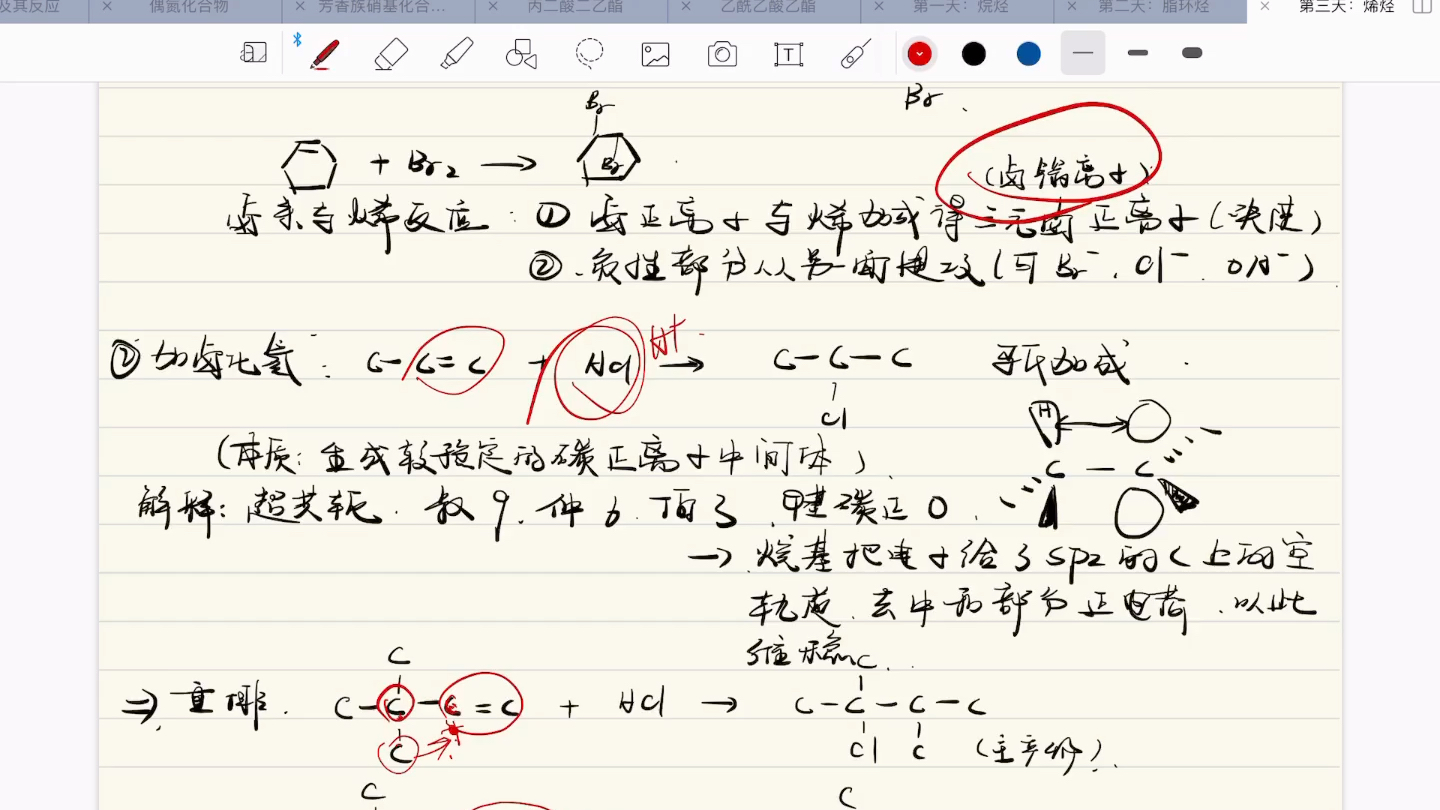 及其反应 × 偶氮化合物 × 芳香族硝基化合... × 丙二酸二乙酯 × 乙酰乙酸乙酯 × 第一天：烷烃 × 第二天：脂环烃 × 第三天：烯烃
T
Br Br
+ Br2 → Br
(卤鎓离子)
卤素与烯反应： ① 卤正离子与烯加成得三元卤正离子(决速)
② 负性部分从另一面进攻(可 Br⁻, Cl⁻, OH⁻)
② 加卤化氢： C-C=C + HCl H+ → C-C-C 马氏加成
Cl
H
(本质：生成较稳定的碳正离子中间体)
C - C
解释：超共轭. 叔9, 仲6, 丙3, 甲基碳正0,
→ 烷基把电子给了sp2的C上的空
轨道, 去中和部分正电荷, 以此
维稳
C C
⇒ 重排. C-C-C=C + HCl → C-C-C-C
C Cl C (主产物)
C C